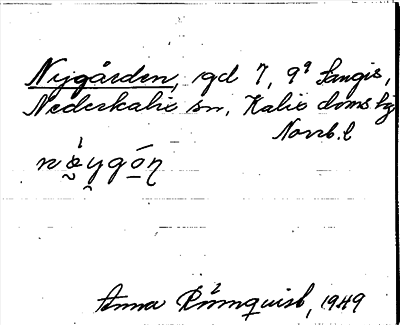 Nygården, gd 7, 9⁹ Sangis,
Nederkalix sn, Kalix doms hg
Norrb. l
Anna Rönnquist, 1949